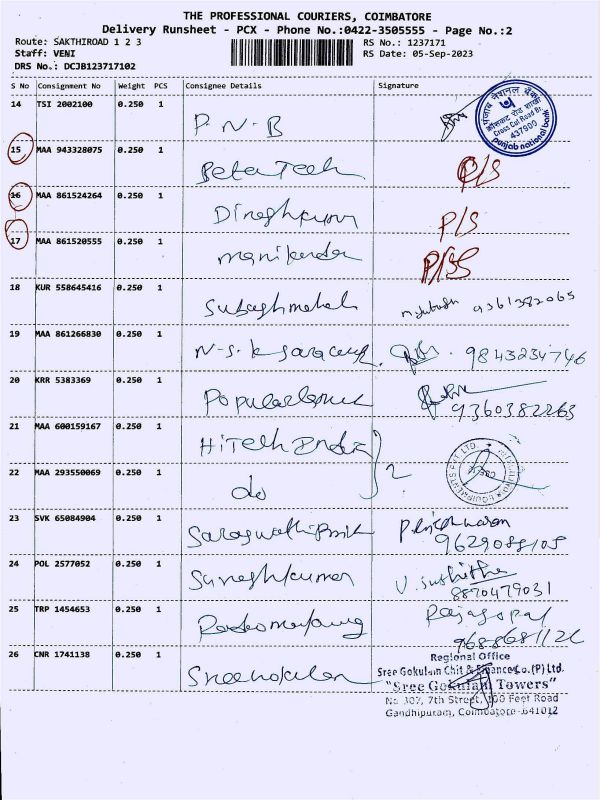 THE PROFESSIONAL COURIERS, COIMBATORE
Delivery Runsheet - PCX - Phone No.:0422-3505555 - Page No.:2
Route: SAKTHIROAD 1 2 3 RS No.: 1237171
Staff: VENI RS Date: 05-Sep-2023
DRS No.: DCJB123717102
S No Consignment No Weight PCS Consignee Details Signature
14 TSI 2002100 0.250 1 P.N.B
पंजाब नैशनल बैंक
Cross Cut Road Br.
437900
punjab national bank
15 MAA 943328075 0.250 1 Beta Tech P/S
16 MAA 861524264 0.250 1 Dineshkumar P/S
17 MAA 861520555 0.250 1 P/S
18 KUR 558645416 0.250 1 9361382065
19 MAA 861266830 0.250 1 N.S.K 9843234746
20 KRR 5383369 0.250 1 9360382263
21 MAA 600159167 0.250 1 HiTech India
22 MAA 293550069 0.250 1 do 2
23 SVK 65084904 0.250 1
24 POL 2577052 0.250 1 Sureshkumar V. Sushitha
8870479031
25 TRP 1454653 0.250 1 Rajagopal
26 CNR 1741138 0.250 1
Regional Office
Sree Gokulam Chit & Finance Co.(P) Ltd.
"Sree Gokulam Towers"
No 307, 7th Street, 100 Feet Road
Gandhipuram, Coimbatore-641012